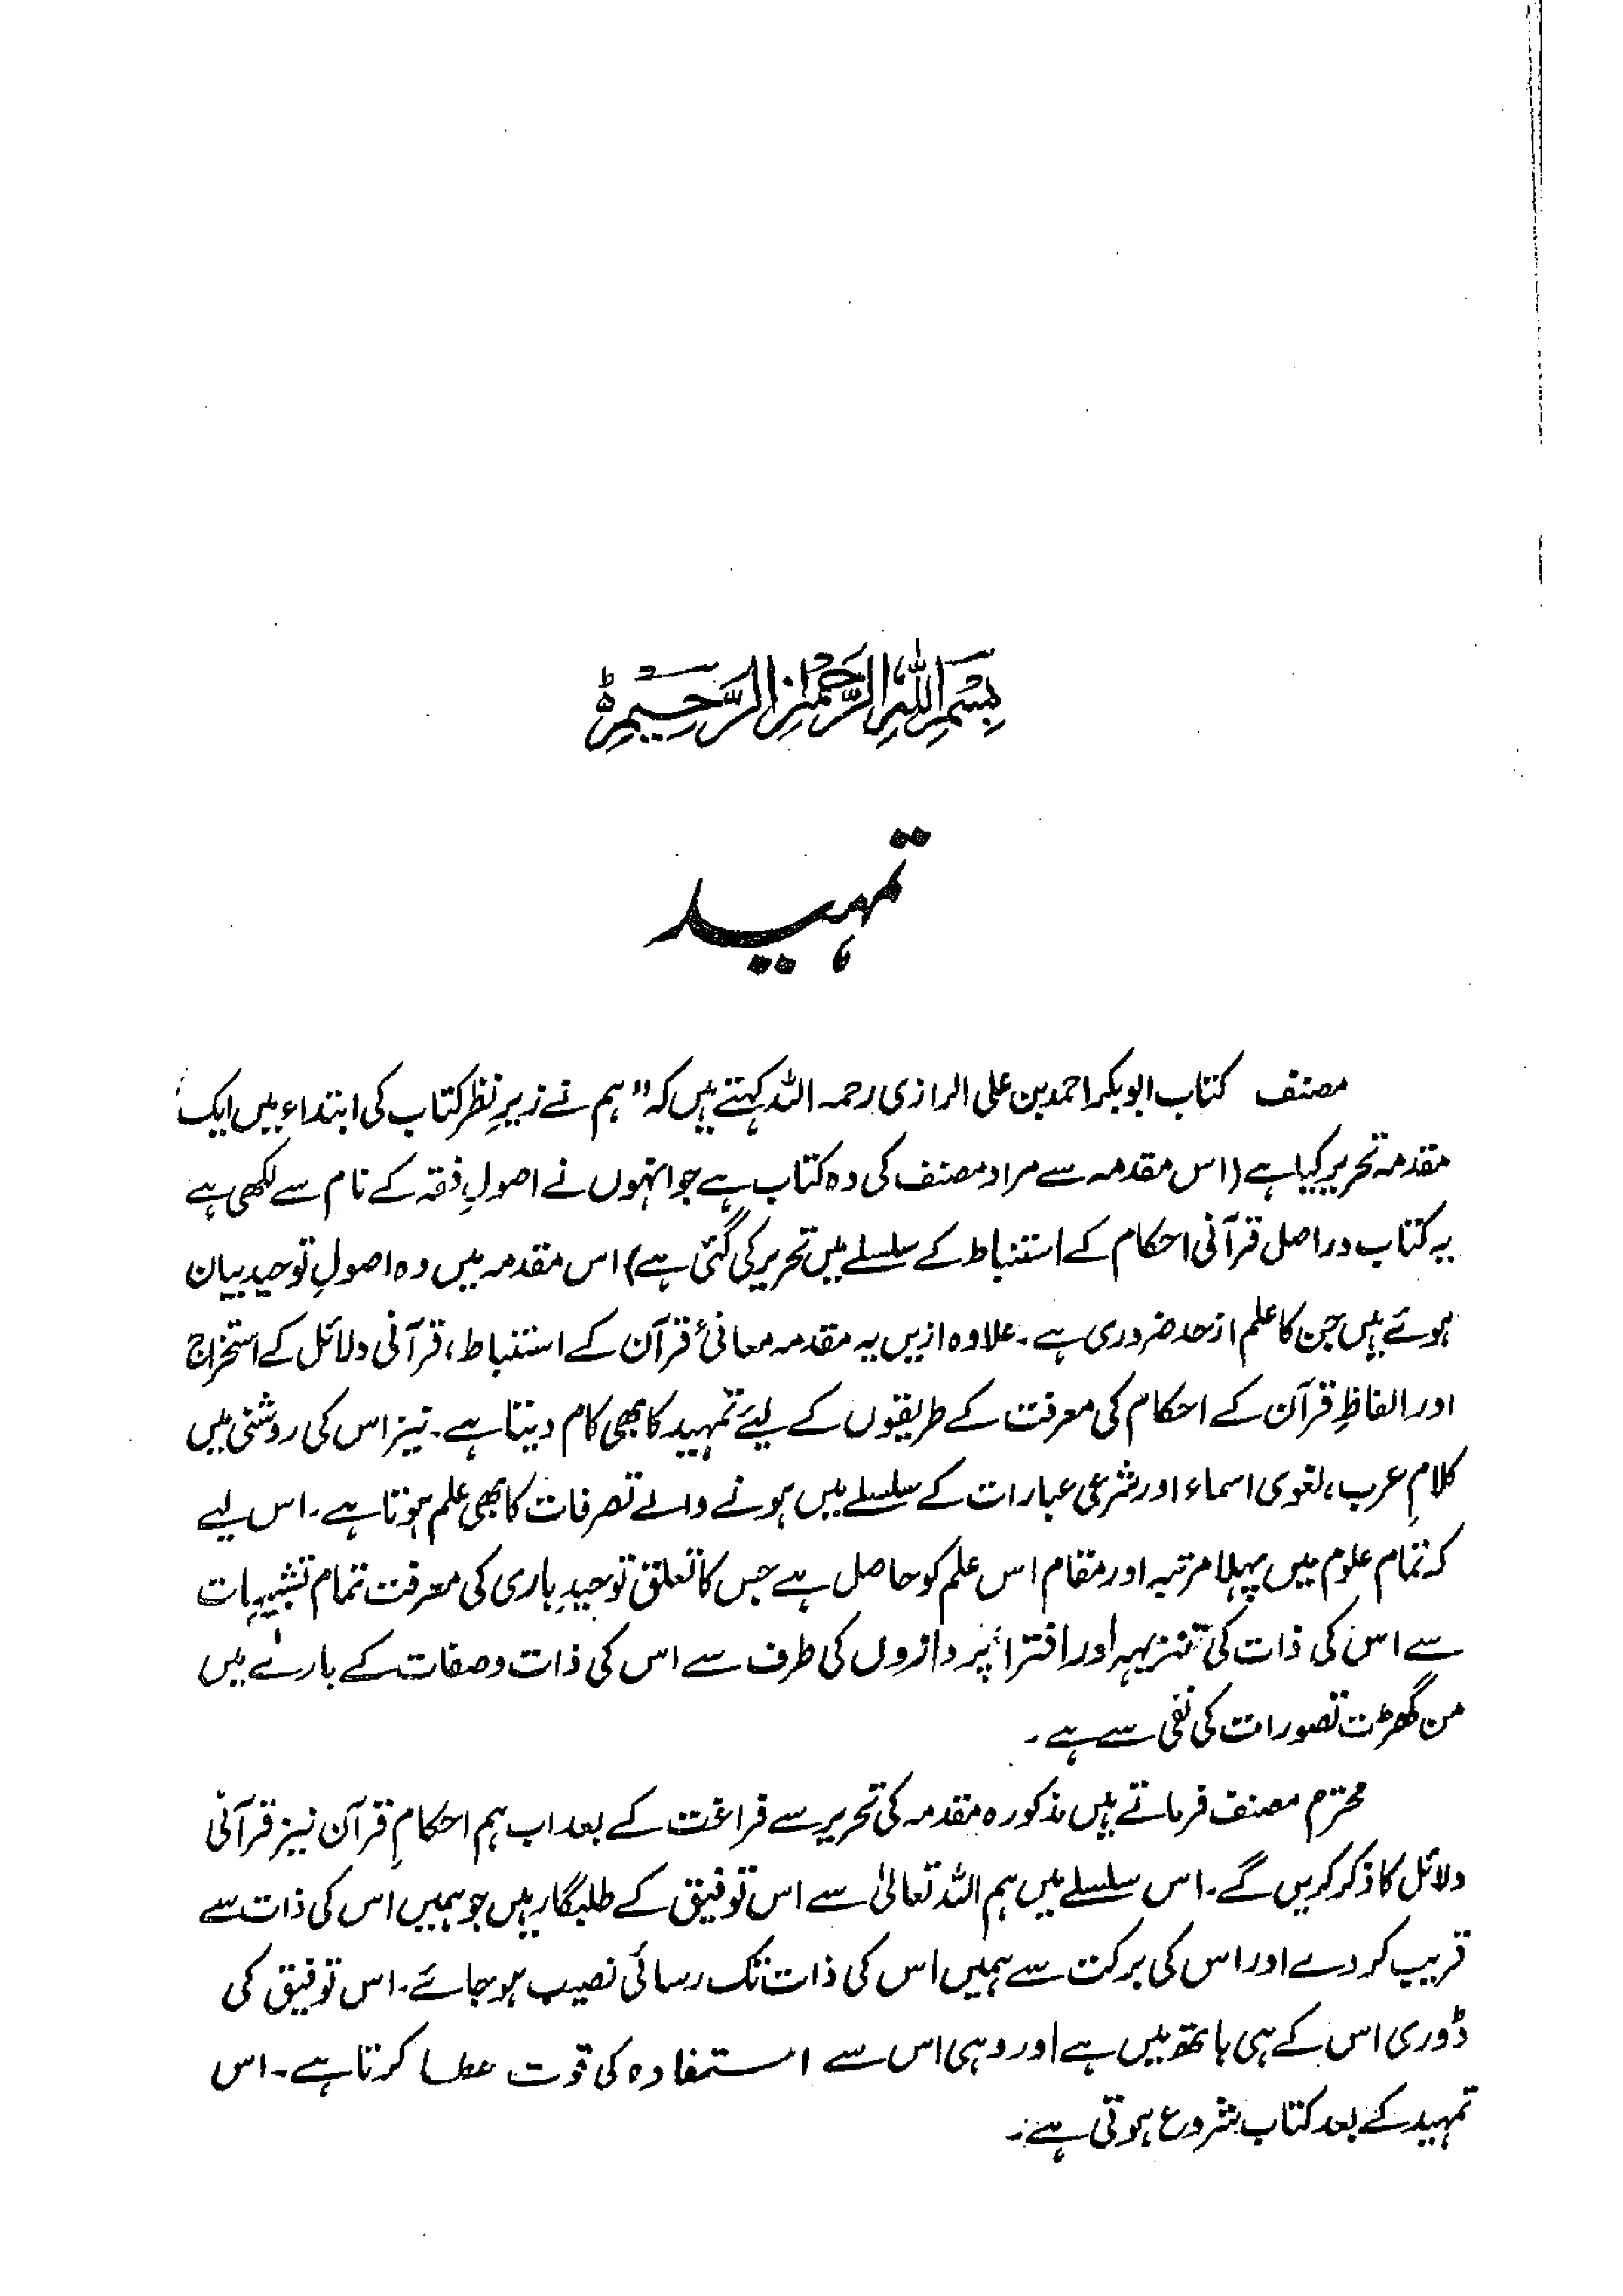 بِسْمِ اللّٰهِ الرَّحْمٰنِ الرَّحِيْمِ ۝
تمہید
مصنف کتاب ابوبکر احمد بن علی الرازی رحمہ اللہ کہتے ہیں کہ "ہم نے زیرِ نظر کتاب کی ابتداء میں ایک
مقدمہ تحریر کیا ہے (اس مقدمہ سے مراد مصنف کی وہ کتاب ہے جو انہوں نے اصولِ فقہ کے نام سے لکھی ہے
یہ کتاب دراصل قرآنی احکام کے استنباط کے سلسلے میں تحریر کی گئی ہے) اس مقدمہ میں وہ اصولِ توحید بیان
ہوئے ہیں جن کا علم از حد ضروری ہے۔ علاوہ ازیں یہ مقدمہ معانیٔ قرآن کے استنباط، قرآنی دلائل کے استخراج
اور الفاظِ قرآن کے احکام کی معرفت کے طریقوں کے لیئے تمہید کا بھی کام دیتا ہے۔ نیز اس کی روشنی میں
کلامِ عرب، لغوی اسماء اور شرعی عبارات کے سلسلے میں ہونے والے تصرفات کا بھی علم ہوتا ہے۔ اس لیے
کہ تمام علوم میں پہلا مرتبہ اور مقام اس علم کو حاصل ہے جس کا تعلق توحیدِ باری کی معرفت تمام تشبیہات
سے اس کی ذات کی تنزیہہ اور افتراء پردازوں کی طرف سے اس کی ذات و صفات کے بارے میں
من گھڑت تصورات کی نفی سے ہے۔
محترم مصنف فرماتے ہیں مذکورہ مقدمہ کی تحریر سے فراغت کے بعد اب ہم احکامِ قرآن نیز قرآنی
دلائل کا ذکر کریں گے۔ اس سلسلے میں ہم اللہ تعالیٰ سے اس توفیق کے طلبگار ہیں جو ہمیں اس کی ذات سے
قریب کر دے اور اس کی برکت سے ہمیں اس کی ذات تک رسائی نصیب ہو جائے۔ اس توفیق کی
ڈوری اس کے ہی ہاتھ میں ہے اور وہی اس سے استفادہ کی قوت عطا کرتا ہے۔ اس
تمہید کے بعد کتاب شروع ہوتی ہے۔